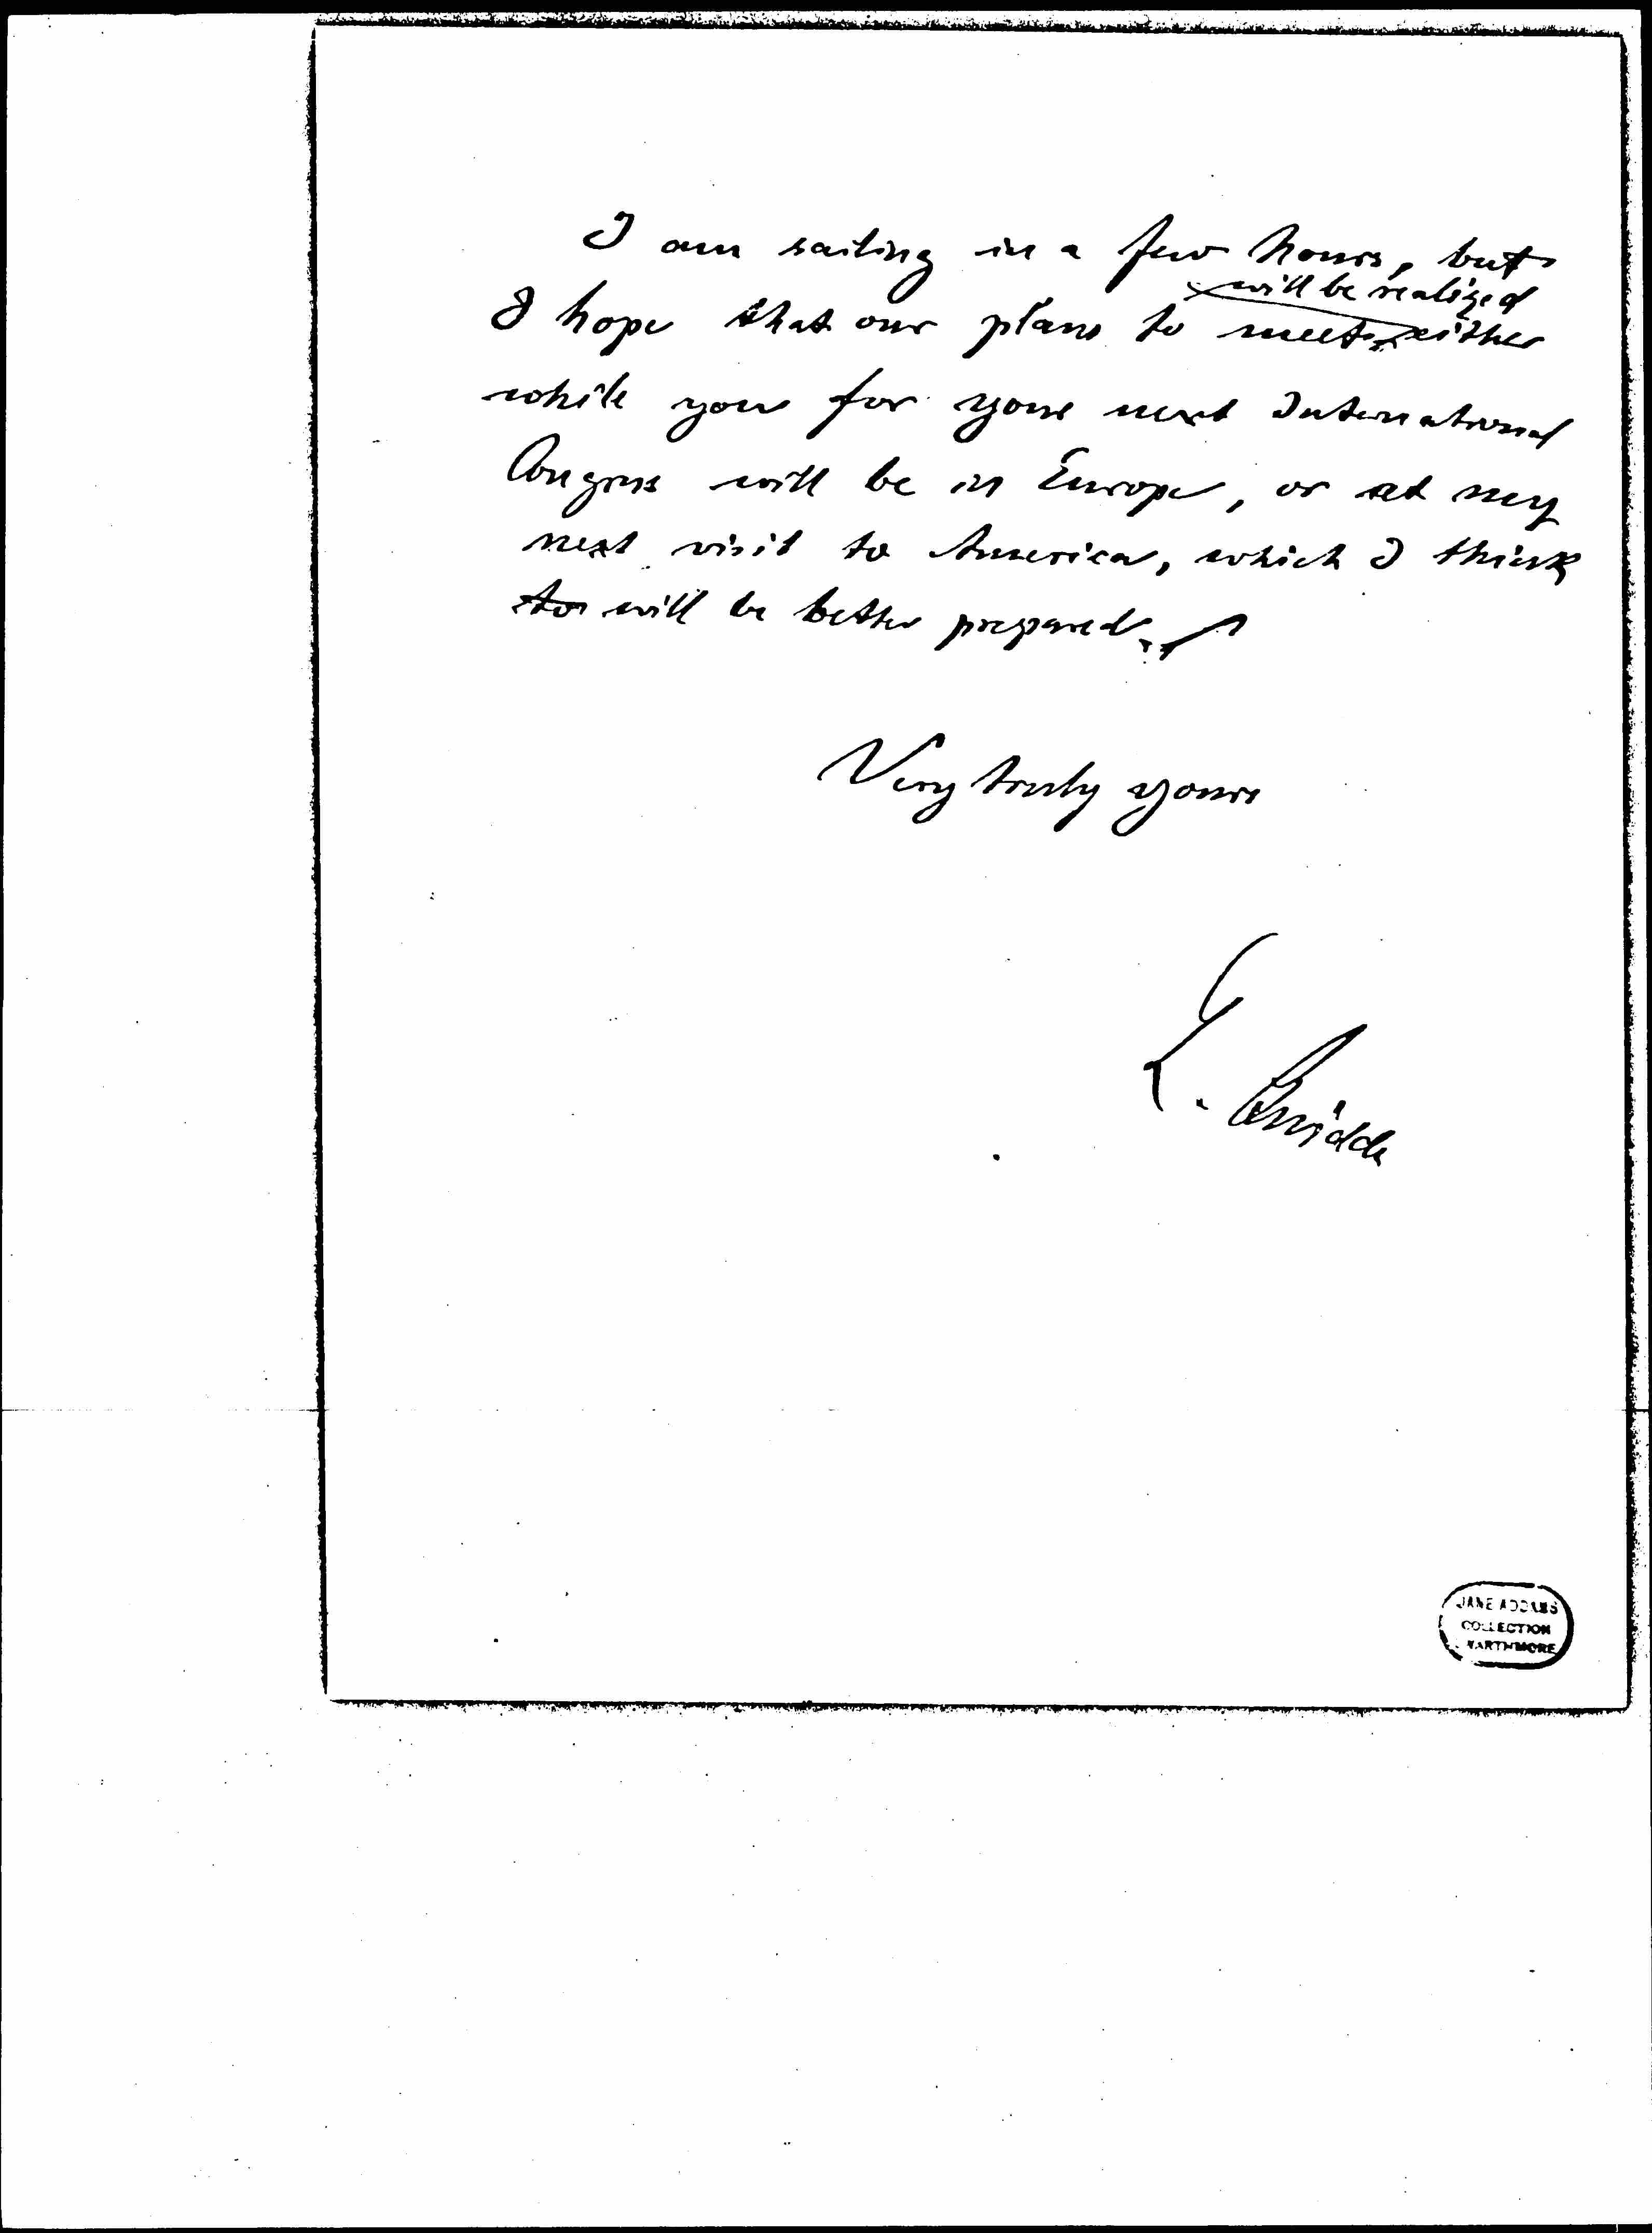 I am sailing in a few hours, but
will be realized
I hope that our plans to meet either
while you for your next International
Congress will be in Europe, or at my
next visit to America, which I think
to will be better prepared.
Very truly yours
L. Quidde
JANE ADDAMS
COLLECTION
WARTHMORE